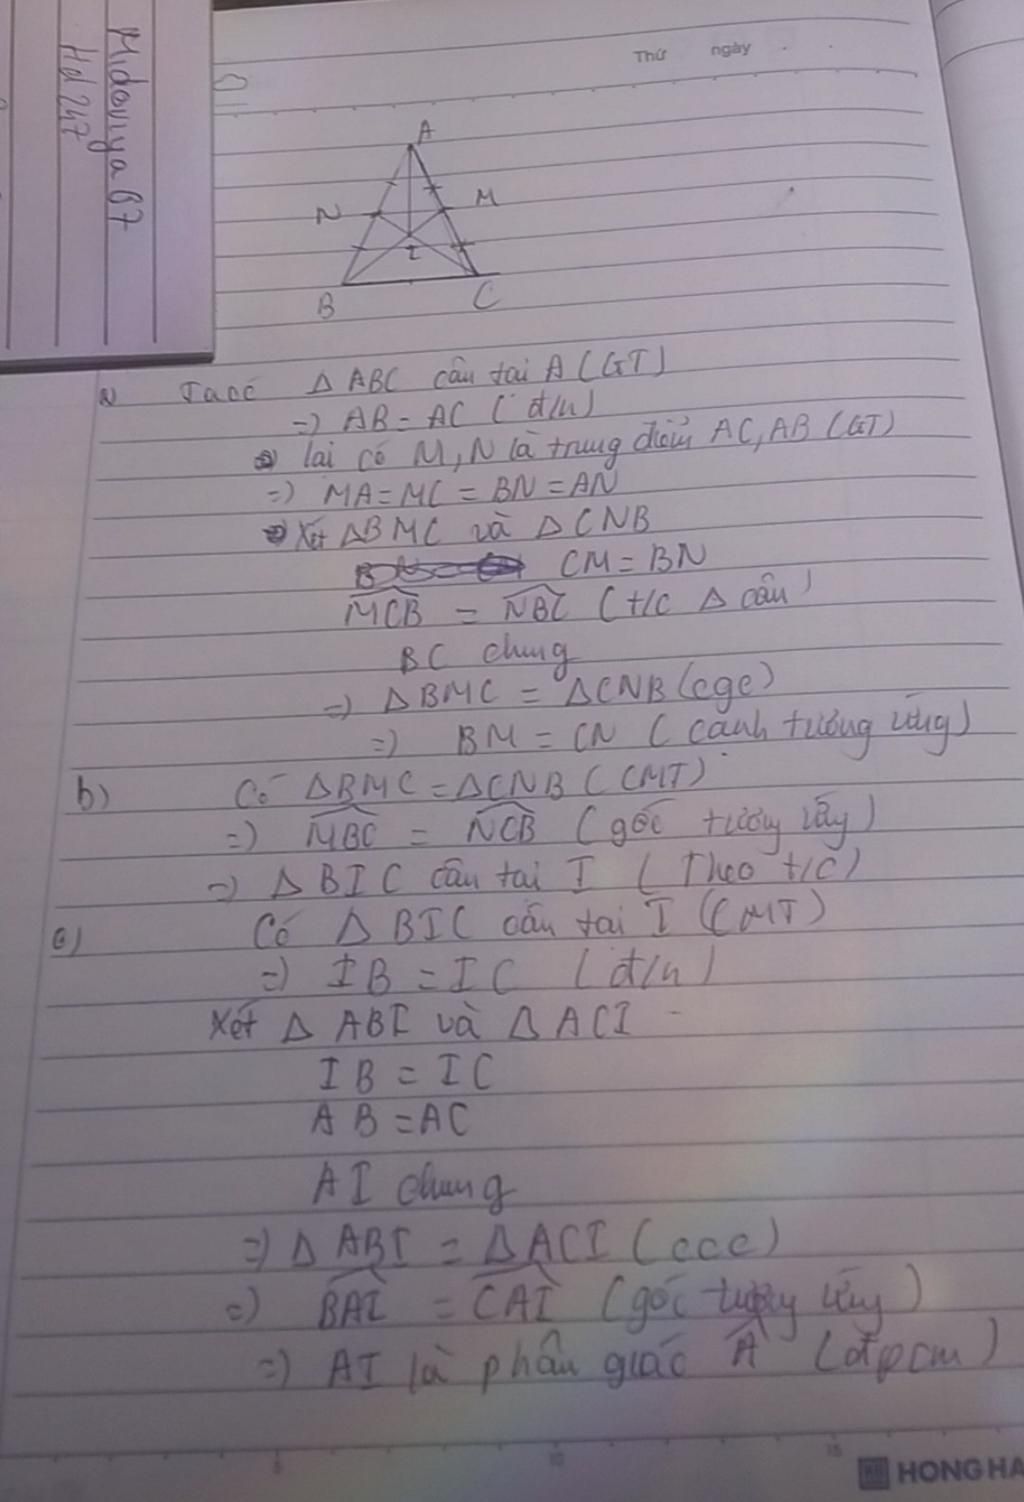 Midoriya 67
Hd 247
Thứ ngày
A
N M
I
B C
a) Ta có Δ ABC cân tại A (GT)
=> AB = AC (đ/n)
lại có M, N là trung điểm AC, AB (GT)
=> MA = MC = BN = AN
Xét ΔBMC và ΔCNB
CM = BN
MCB = NBC (t/c Δ cân)
BC chung
=> ΔBMC = ΔCNB (cgc)
=> BM = CN (cạnh tương ứng)
b) Có ΔBMC = ΔCNB (CMT)
=> MBC = NCB (góc tương ứng)
=> Δ BIC cân tại I (Theo t/c)
c) Có Δ BIC cân tại I (CMT)
=> IB = IC (đ/n)
Xét Δ ABI và Δ ACI
IB = IC
AB = AC
AI chung
=> Δ ABI = Δ ACI (ccc)
=> BAI = CAI (góc tương ứng)
=> AI là phân giác A (đpcm)
5 10 15
HONG HA